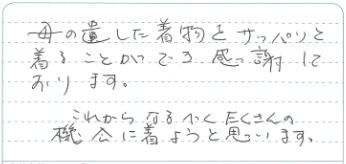 母の遺した着物をサッパリと
着ることができ感謝して
おります。
これからなるべくたくさんの
機会に着ようと思っています。